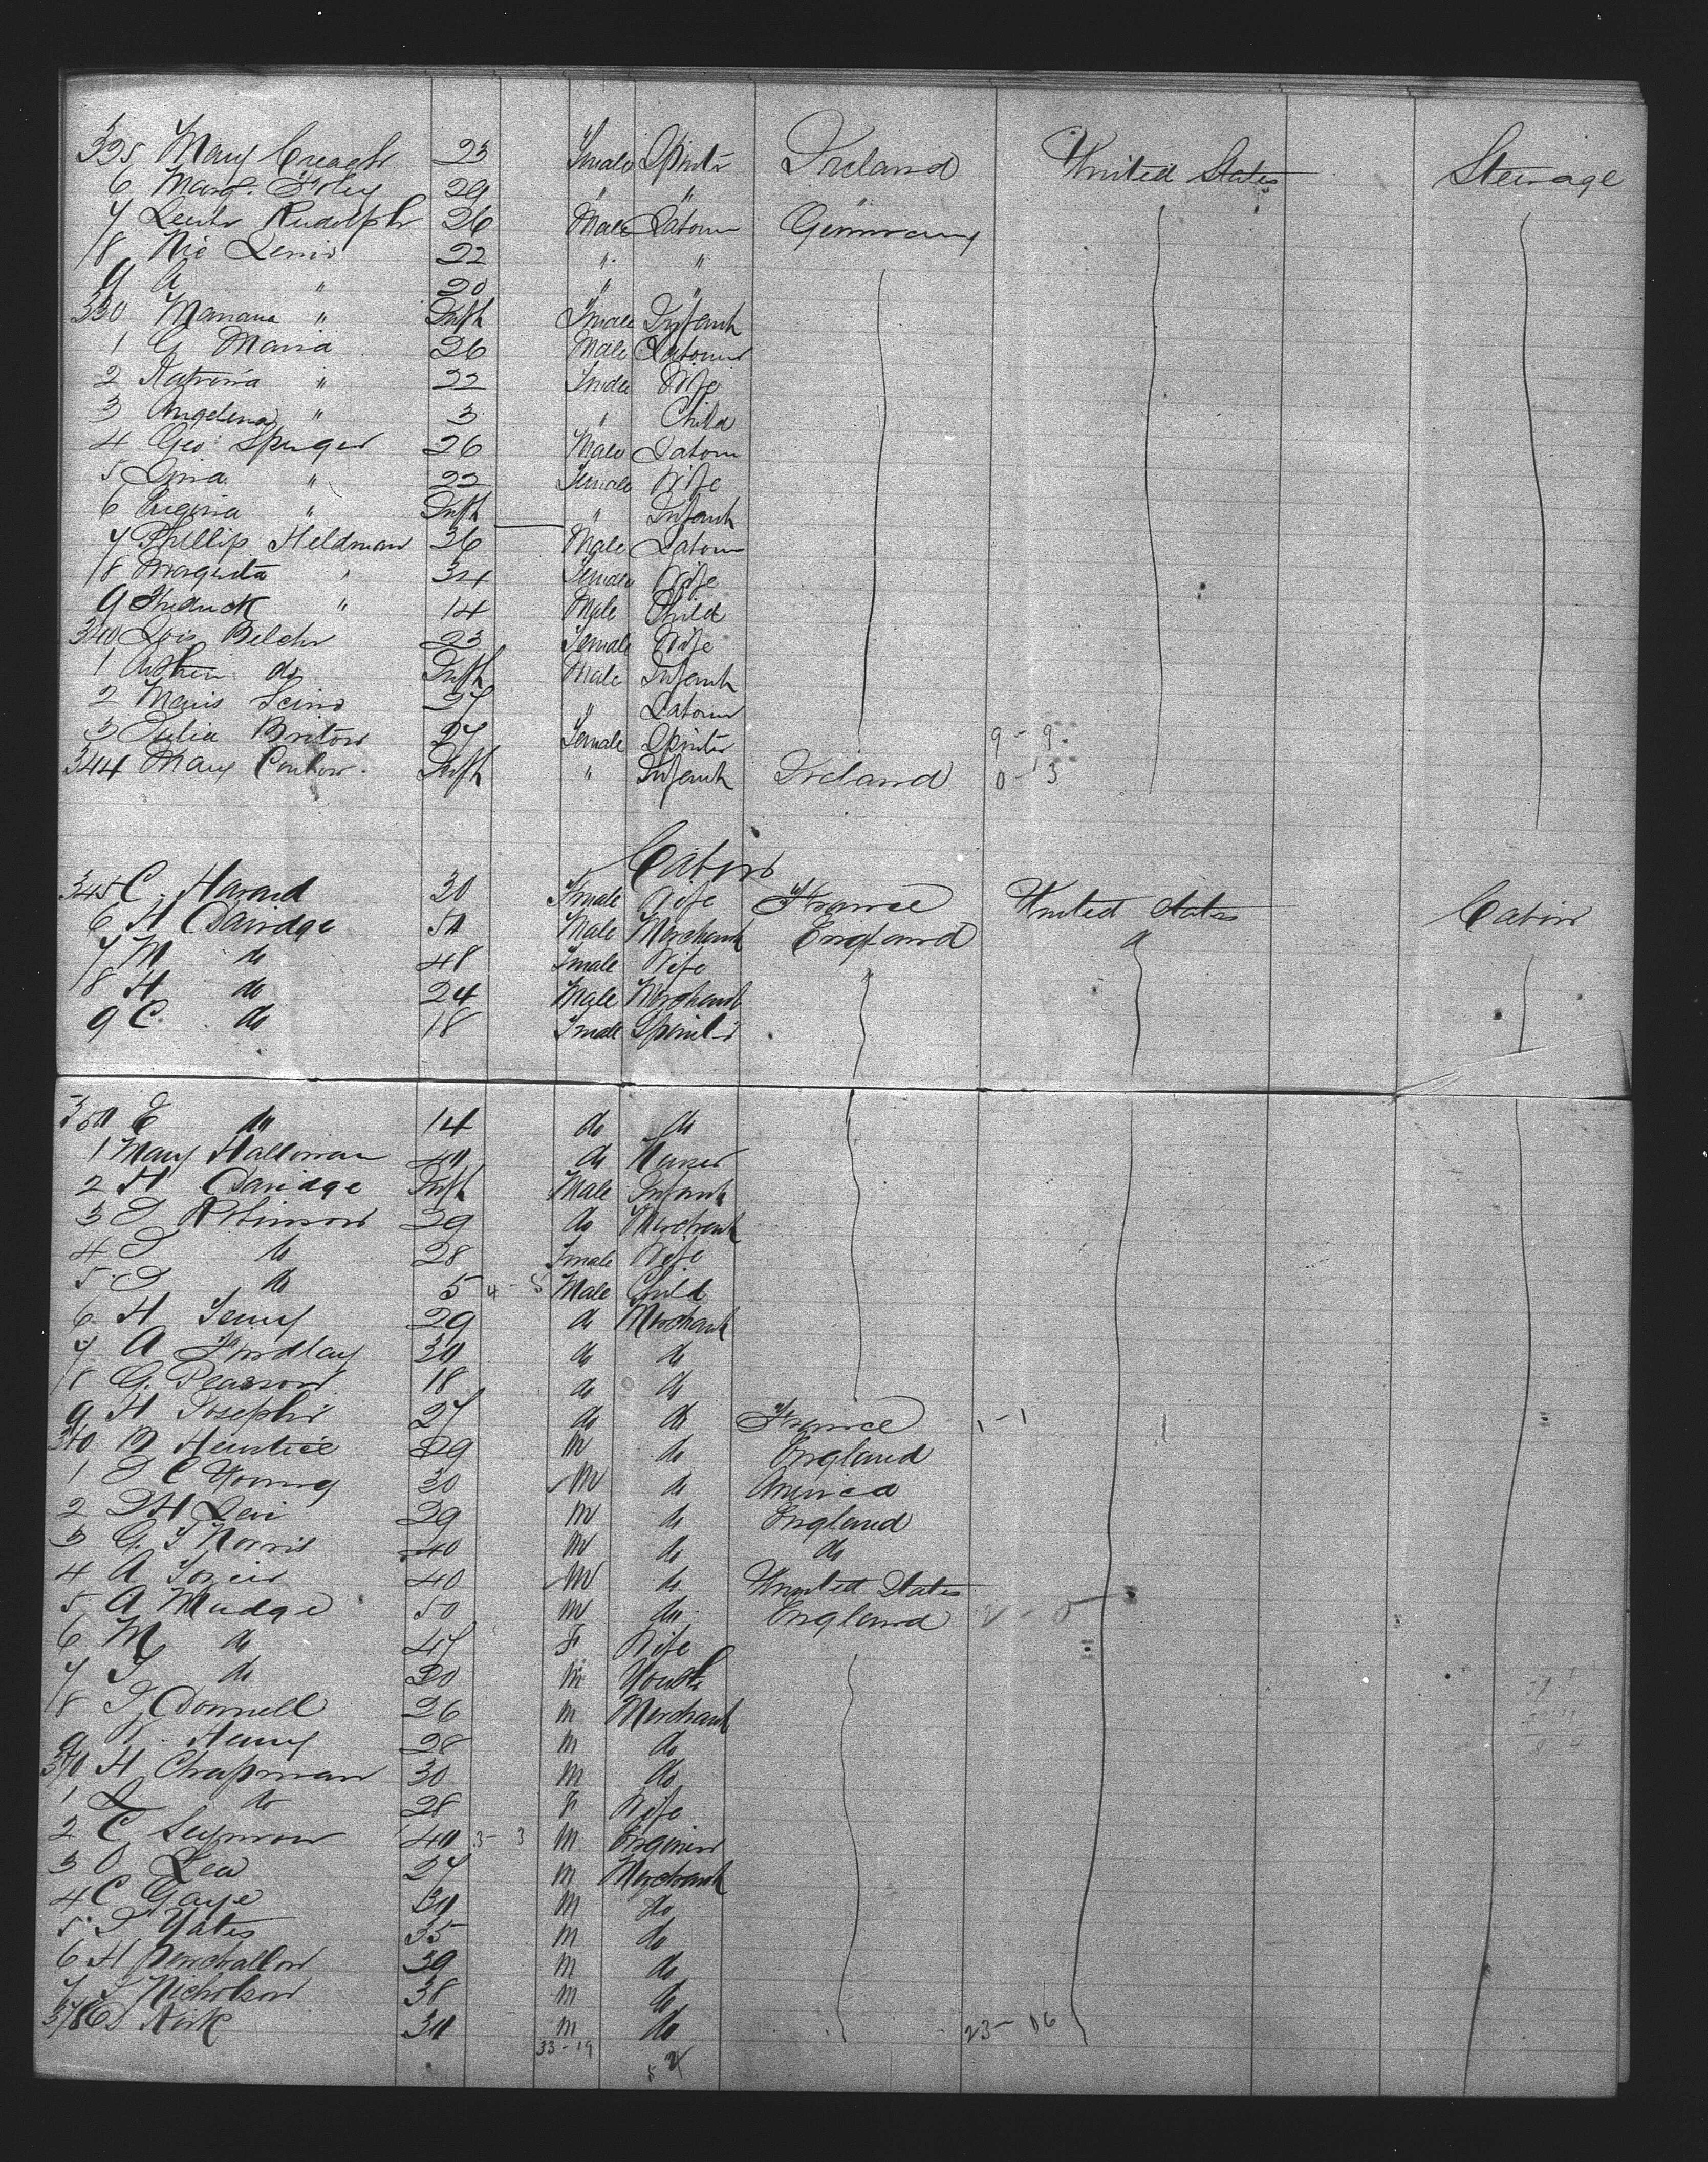 325 Mary Creagh 23 Female Spinstr Ireland United States Steerage
6 Marg. Foley 29 " "
7 Rudolph 26 Male Labour Germany
8 Nic Lewis 22 " "
9 A " 20 " "
330 Mariana " Infth Female Infant
1 G Maria 26 Male Labour
2 Katrina " 22 Female Wife
3 Angelena " 3 " Child
4 Geo: Spenger 26 Male Labour
5 " 22 Female Wife
6 " Infth " Infant
7 Phillip Heldman 36 Male Labour
8 Magreta " 34 Female Wife
9 Fredrick " 14 Male Child
340 Lois Belchr 23 Female Wife
1 do Infth Male Infant
2 27 " Labour
3 Julia Briton 27 Female Spinstr 9 - 9
344 Mary Conlon Infth " Infant Ireland 0 - 13
Cabin
345 C. Havard 30 Female Wife France United States Cabin
6 H Davidge 50 Male Merchant England "
7 M do 48 Female Wife "
8 H do 24 Male Merchant
9 C. do 18 Female Spinstr
350 E do 14 do do
1 Mary Halloran 40 do Nurse
2 H Davidge Infth Male Infant
3 J Robinson 29 do Merchant
4 J do 28 Female Wife
5 J do 5 4 - 5 Male Child
6 H 29 do Merchant
7 A Findlay 30 do do
8 G. Pearson 18 do do
9 H Josephs 27 do do France 1 - 1
340 29 M do England
1 J C Young 30 M do America
2 J H Levi 29 M do England
3 G. J Norris 40 M do do
4 A 40 M do United States
5 A Mudge 50 M do England
6 M do 47 F Wife
7 J do 20 M Youth
8 J Donnell 26 M Merchant
9 W. Henry 28 M do
370 H Chapman 30 M do
1 L do 28 F Wife
2 C Seymour 40 3 - 3 M Engineer
3 O Lea 27 M Merchant
4 C Gaye 30 M do
5 J Yates 35 M do
6 H Penchallow 39 M do
7 J Nicholson 38 M do
378 D Kirk 30 M do 23 - 06
33 - 19